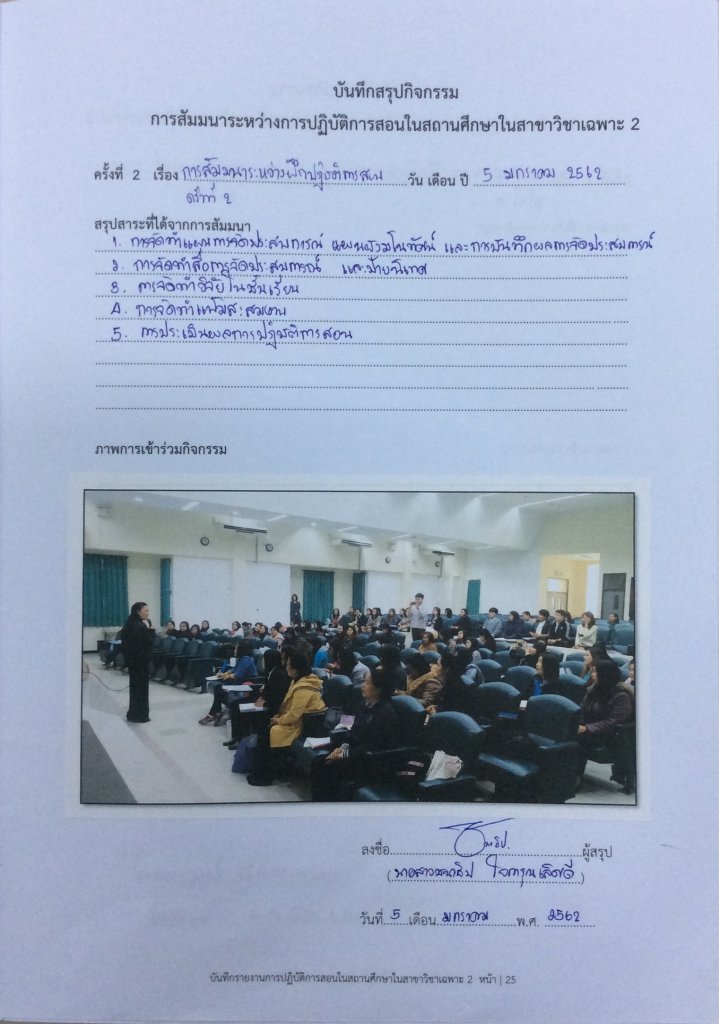 บันทึกสรุปกิจกรรม
การสัมมนาระหว่างการปฏิบัติการสอนในสถานศึกษาในสาขาวิชาเฉพาะ 2
ครั้งที่ 2 เรื่อง การสัมมนาระหว่างฝึกปฏิบัติการสอน วัน เดือน ปี 5 มกราคม 2562
ครั้งที่ 2
สรุปสาระที่ได้จากการสัมมนา
1. การจัดทำแผนการจัดประสบการณ์ แผนผังมโนทัศน์ และการบันทึกผลการจัดประสบการณ์
2. การจัดทำสื่อการจัดประสบการณ์ และป้ายนิเทศ
3. การจัดทำวิจัยในชั้นเรียน
4. การจัดทำแฟ้มสะสมงาน
5. การประเมินผลการปฏิบัติการสอน
ภาพการเข้าร่วมกิจกรรม
ลงชื่อ ผู้สรุป
(นางสาว)
วันที่ 5 เดือน มกราคม พ.ศ. 2562
บันทึกรายงานการปฏิบัติการสอนในสถานศึกษาในสาขาวิชาเฉพาะ 2 หน้า | 25